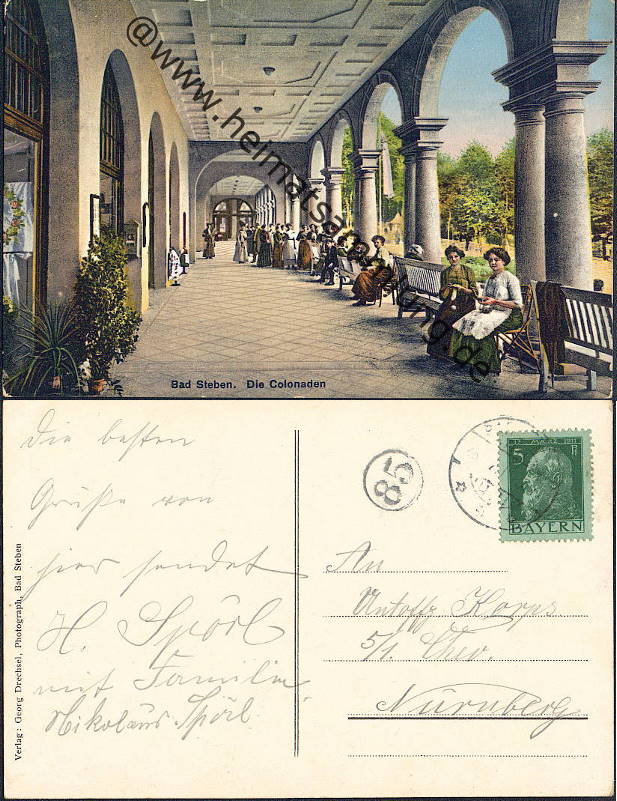 @www.heimatsammlung.de
Bad Steben. Die Colonaden
die besten
Grüße von
hier sendet
H. Spörl
mit Familie
Nikolaus Spörl
Verlag: Georg Drechsel, Photograph, Bad Steben
85
12. MÄRZ 1911
5 Pf
BAYERN
An
Untoffz. Korps
5/1. Chev.
Nürnberg